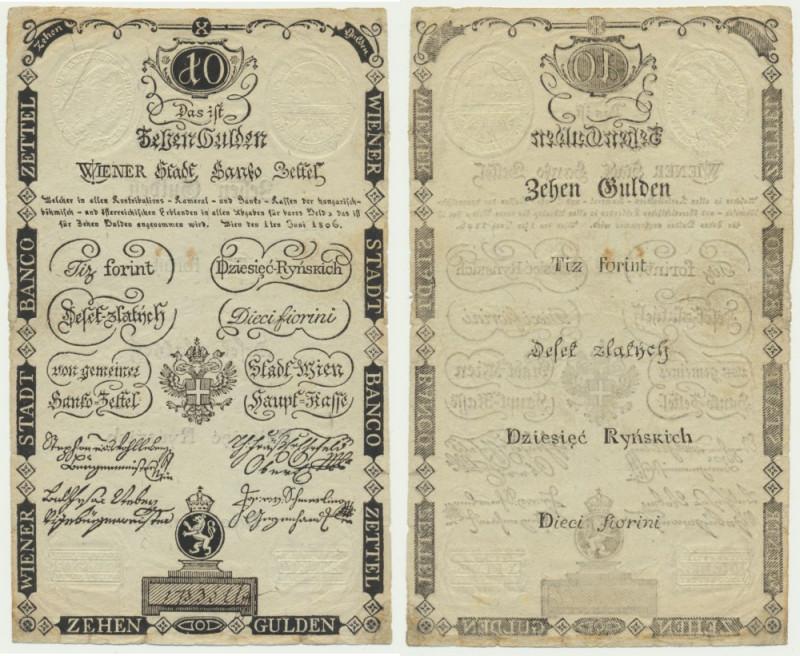 Zehen
X
Gulden
10
Das ist
Zehen Gulden
WIENER Stadt Banko Zettel
Welcher in allen Kontributions - Kameral - und Banko - Kassen der hungarisch-
böhmisch - und österreichischen Erblanden in allen Abgaben für bares Geld, das ist
für Zehen Gulden angenommen wird. Wien den 1ten Juni 1806.
Tiz forint
Dziesięć-Ryńskich
Deset-zlatých
Dieci fiorini
von gemeiner
Stadt Wien
Banko Zettel
Haupt-Kasse
WIENER STADT BANCO ZETTEL
WIENER STADT BANCO ZETTEL
ZEHEN 10 GULDEN
Zehen Gulden
Tiz forint
Deset zlatých
Dziesięć Ryńskich
Dieci fiorini